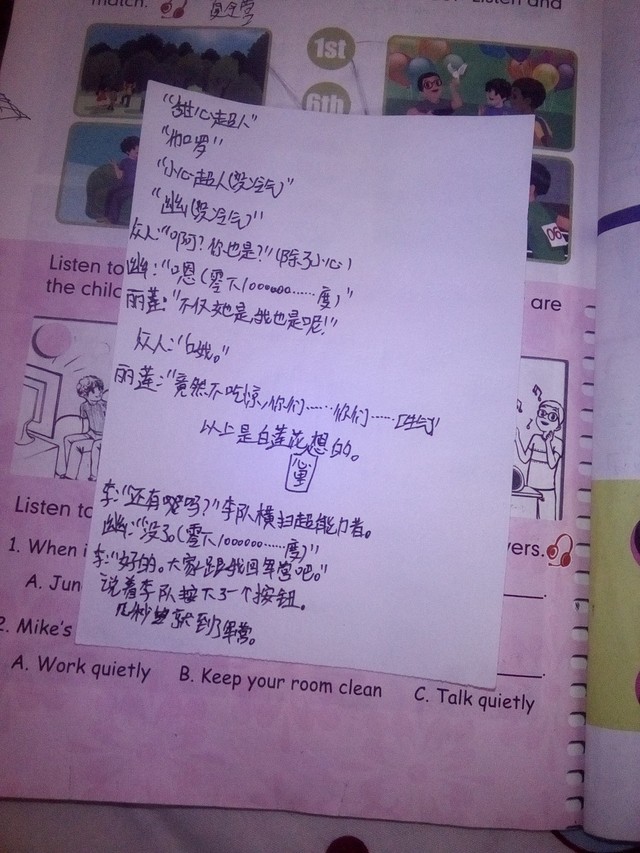 match.
Listen and
1st
6th
"甜心超人"
"伽罗"
"小心超人(没冷气)"
"幽(没冷气)"
众人:"啊?你也是?"(除了小心)
幽:"嗯(零下1000000……度)"
丽莲:"不仅她是,我也是呢!"
众人:"哦。"
丽莲:"竟然不吃惊,你们……你们……[生气]"
以上是白莲花想的。
心里
李:"还有呢吗?"李队横扫超能力者。
幽:"没了(零下1000000……度)"
李:"好的。大家跟我回军营吧。"
说着李队按下了一个按钮。
几秒就到了军营。
Listen to
the chil
are
Listen to
vers.
1. When i
A. Jun
2. Mike's
A. Work quietly B. Keep your room clean C. Talk quietly